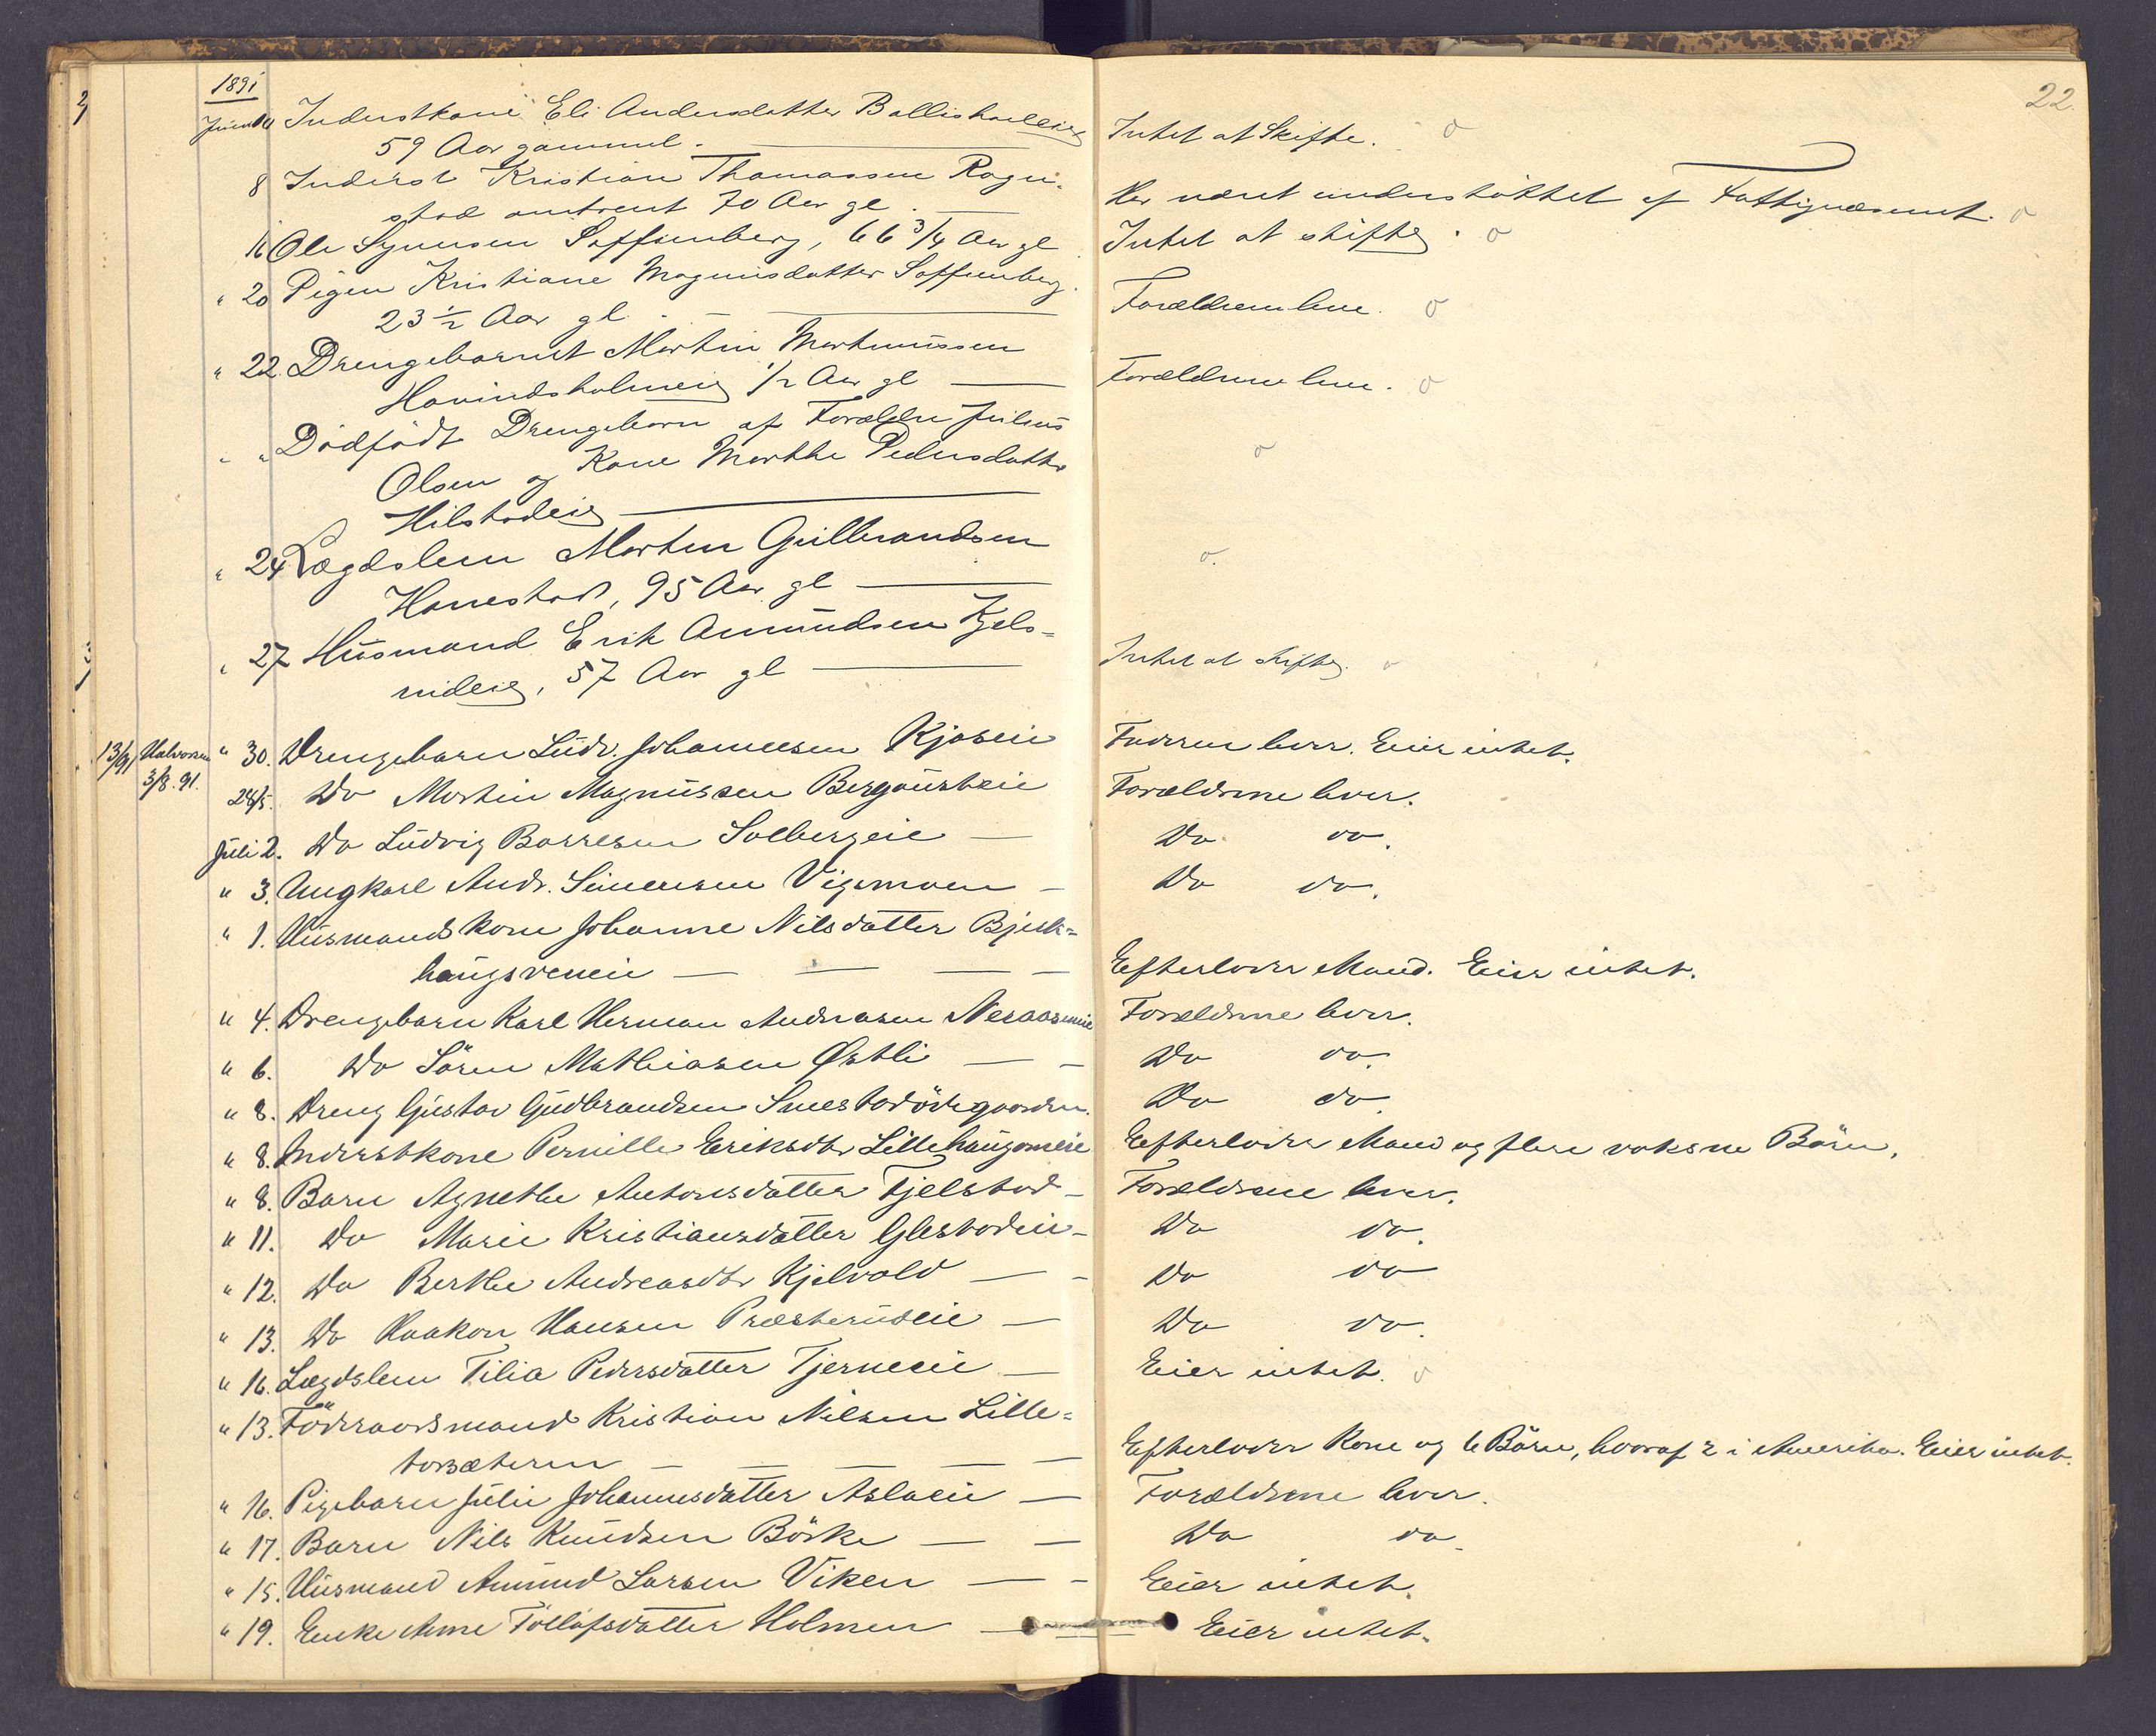 22.
1891
Inderstkone Eli Andersdatter Ballishouleie Intet at Skifte.
59 Aar gammel.
8 Inderst Kristian Thomassen Rogn-
stad omtrent 70 Aar gl. Har været understøttet af Fattigvæsenet.
16 Ole Syversen Soffienberg, 66 3/4 Aar gl Intet at skifte.
" 20 Pigen Kristiane Magnusdatter Soffienberg.
23 1/2 Aar gl. Forældrene leve.
" 22. Drengebarnet Martin Martinussen
Hovindsholmeie 1/2 Aar gl Forældrene leve.
" " Dödfödt Drengebarn af Forældre Julius
Olsen og Kone Marthe Pedersdatter
Hilstadeie
" 24 Lægdslem Morten Gulbrandsen
Hanestad, 95 Aar gl
" 27 Husmand Erik Amundsen Kjels-
rudeie, 57 Aar gl Intet at skifte.
13/91 Halvorsen " 30. Drengebarn Ludv. Johannesen Kjoseie Faderen lever. Eier intet.
3/8.91. 28/5. Do Martin Magnussen Bergousteie Forældrene lever.
Juli 2. Do Ludvig Borresen Solbergeie Do do.
" 3. Ungkarl Andr. Simensen Vigsmoen Do do.
" 1. Husmandskone Johanne Nilsdatter Bjerk-
haugsveneie Efterlader Mand. Eier intet.
" 4. Drengebarn Karl Herman Andreasen Neraaseneie Forældrene lever.
" 6. Do Sören Mathiasen Østli Do do.
" 8. Dreng Gustav Gudbrandsen Smestadödegaarden. Do do.
" 8. Inderstkone Pernille Eriksdtr Lillehaugomeie Efterlader Mand og flere voksne Börn.
" 8. Barn Agnethe Antonsdatter Fjelstad Forældrene lever.
" 11. Do Marie Kristiansdatter Glestadeie Do do.
" 12. Do Berthe Andreasdtr Kjelvold Do do
" 13. Do Haakon Hansen Præsterudeie Do do.
" 16. Lægdslem Tilia Pedersdatter Tjerneeie Eier intet.
" 13. Föderaadsmand Kristian Nilsen Lille-
torsæteren Efterlader Kone og 6 Börn, hvoraf 2 i Amerika. Eier intet.
" 16. Pigebarn Julie Johannesdatter Aslaeie Forældrene lever.
" 17. Barn Nils Knudsen Börke Do do.
" 15. Husmand Amund Larsen Viken Eier intet.
" 19. Enke Anne Tollofsdatter Holmen Eier intet.